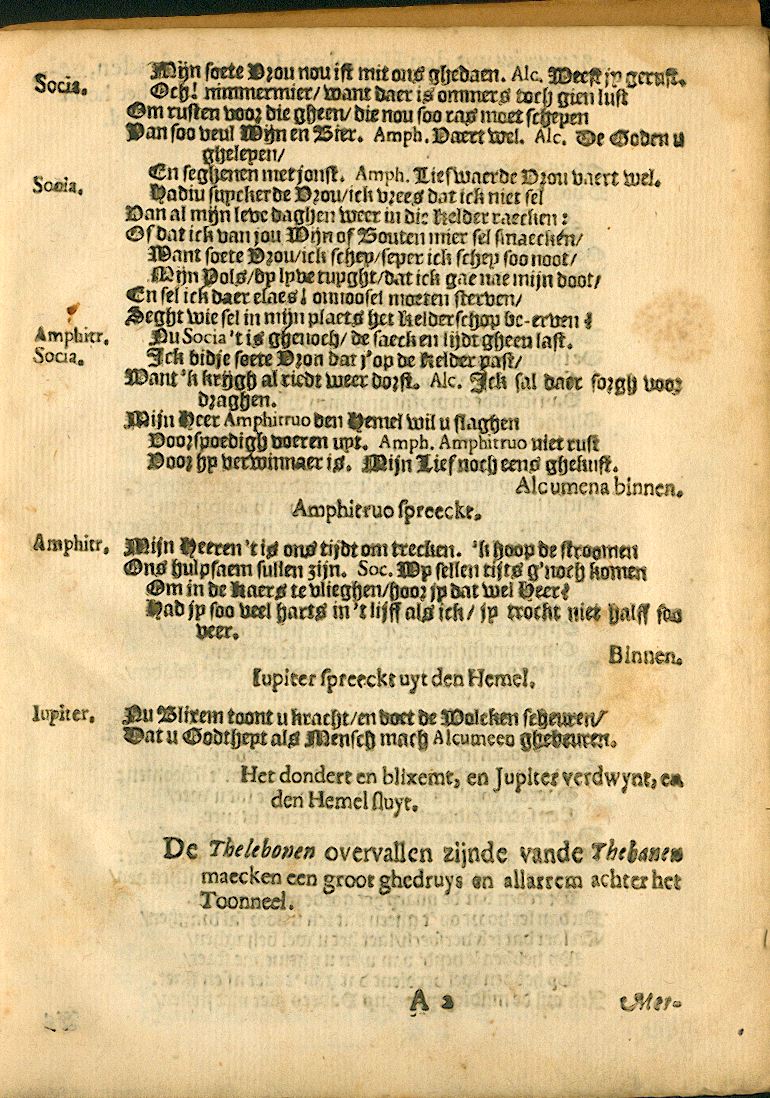 Mijn soete Vrou nou ist mit ons ghedaen. Alc. Weest jy gerust.
Socia. Och! nimmermier/ want daer is ommers toch gien lust
Om rusten voor die gheen/ die nou soo ras moet schepen
Van soo veul Wijn en Bier. Amph. Vaert wel. Alc. De Goden u
ghelepen/
En seghenen met jonst. Amph. Lief waerde Vrou vaert wel.
Socia. Hadiu suyckerde Vrou/ick vrees dat ick niet sel
Van al mijn leve daghen weer in die Kelder raecken:
Of dat ick van jou Wijn of Bouten mier sel smaecken/
Want soete Vrou/ick schep/seper ick schep soo noot/
Mijn Pols/ dy lyve tuyght/dat ick gae nae mijn doot/
En sel ick daer elaes! onnoosel moeten sterven/
Seght wie sel in mijn plaets het Kelderschop be-erven?
Amphitr. Nu Socia 't is ghenoch/ de saeck en lijdt gheen last.
Socia. Ick bidje soete Vrou dat j'op de Kelder past/
Want 'k krijgh al riedt weer dorst. Alc. Ick sal daer sorgh voor
draghen.
Mijn Heer Amphitruo den Hemel wil u slaghen
Voorspoedigh voeren uyt. Amph. Amphitruo niet rust
Voor hy verwinnaer is. Mijn Lief noch eens ghekust.
Alcumena binnen.
Amphitruo spreeckt.
Amphitr. Mijn Heeren 't is ons tijdt om trecken. 'k hoop de stroomen
Ons hulpsaem sullen zijn. Soc. Wy sellen tijts g'noch komen
Om in de Kaers te vlieghen/hoor jy dat wel Heer?
Had jy soo veel harts in 't lijff als ick/ jy trockt niet halff soo
veer.
Binnen.
Iupiter spreeckt uyt den Hemel.
Iupiter. Nu Blixem toont u kracht/en doet de Wolcken scheuren/
Dat u Godtheyt als Mensch mach Alcumeen ghebeuren.
Het dondert en blixemt, en Jupiter verdwynt, en
den Hemel sluyt.
De Thelebonen overvallen zijnde vande Thebanen
maecken een groot ghedruys en allarrem achter het
Toonneel.
A 2 Mer-